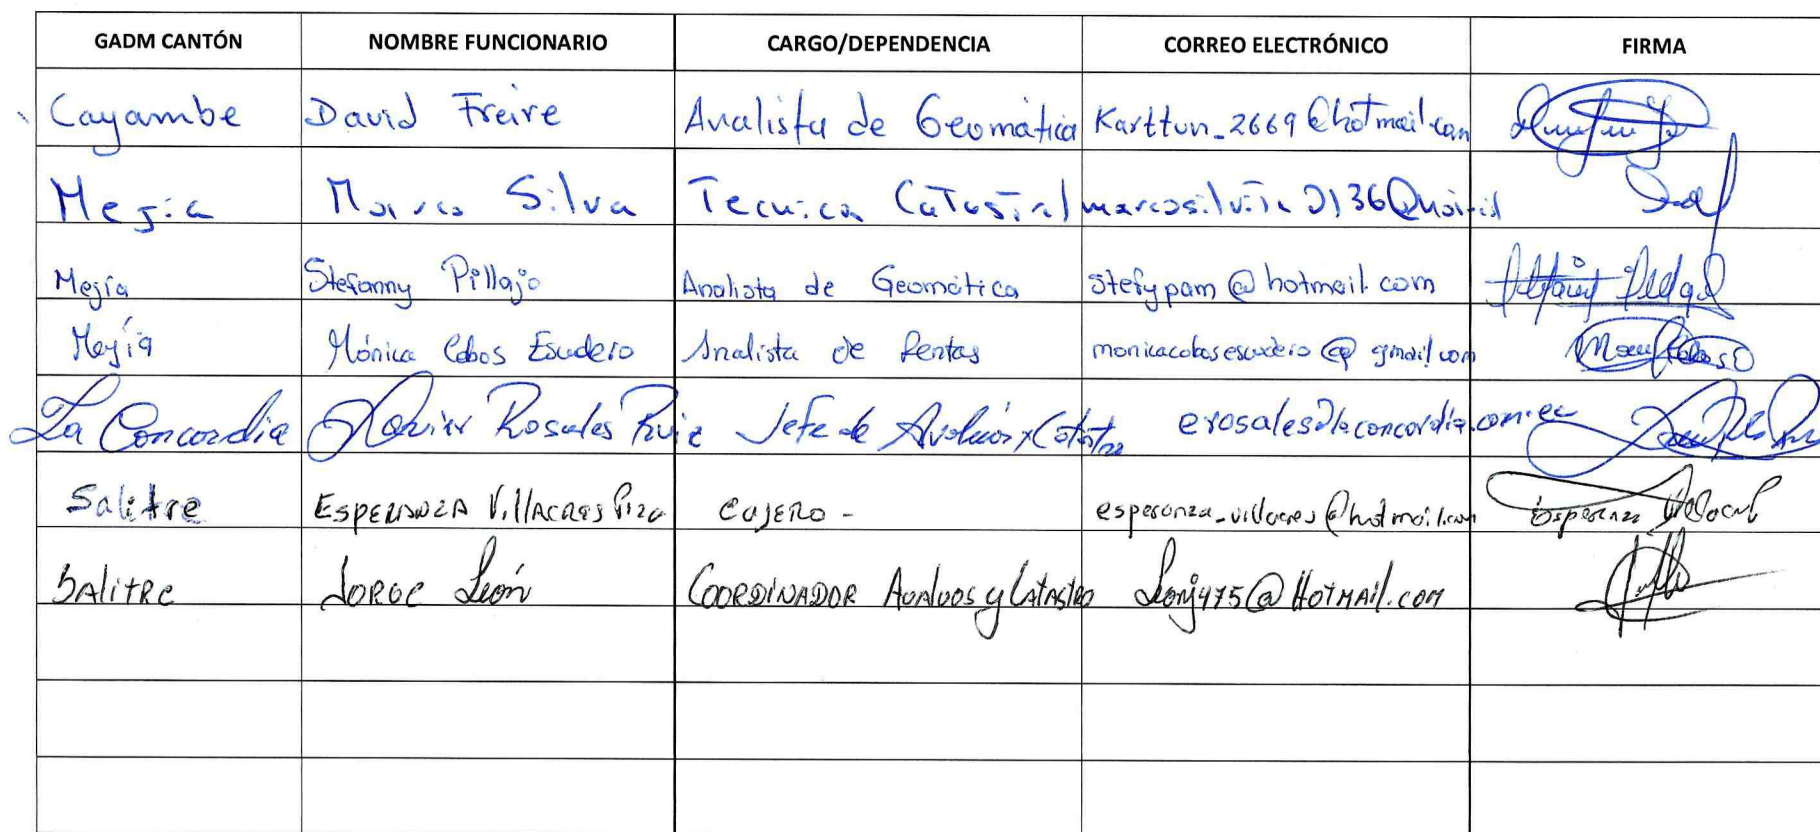 GADM CANTÓN NOMBRE FUNCIONARIO CARGO/DEPENDENCIA CORREO ELECTRÓNICO FIRMA
Cayambe David Freire Analista de Geomática Karttun_2669@hotmail.com
Mejia Marco Silva Tecnico Catastral
Mejía Stefanny Pillajo Analista de Geomática stefypam@hotmail.com
Mejía Mónica Cobos Escudero Analista de Rentas monicacobosescudero@gmail.com
La Concordia Xavier Rosales Ruiz Jefe de Avalúos y Catastro
Salitre ESPERANZA VILLACRES Piza CAJERO - esperanza_villacres@hotmail.com Esperanza
SALITRE JORGE León COORDINADOR AVALUOS y CATASTRO Leonj475@HOTMAIL.COM